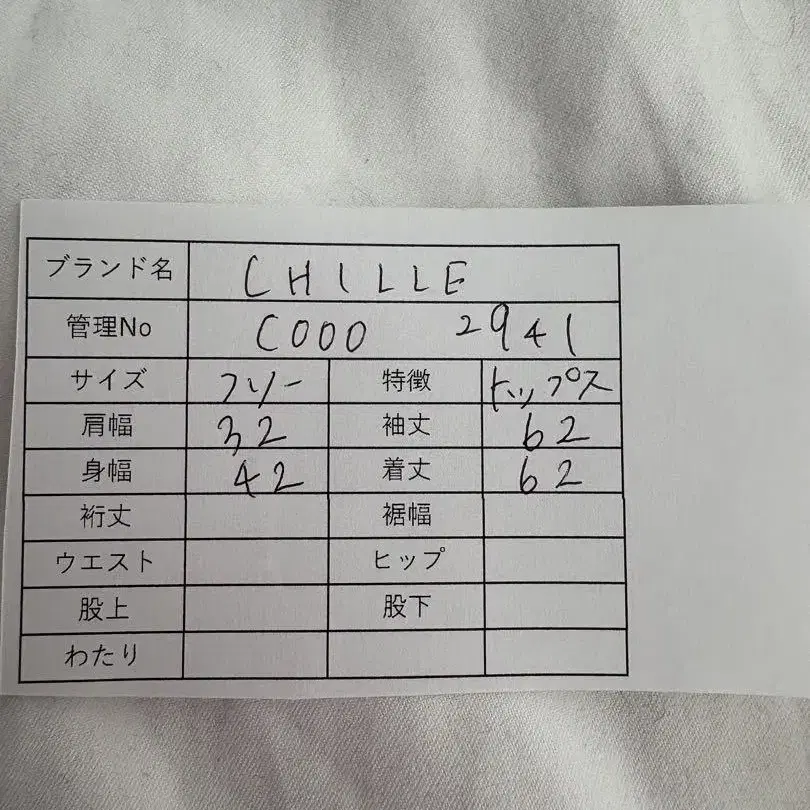 ブランド名 CHILLE
管理No C000 2941
サイズ フリー 特徴 トップス
肩幅 32 袖丈 62
身幅 42 着丈 62
裄丈 裾幅
ウエスト ヒップ
股上 股下
わたり